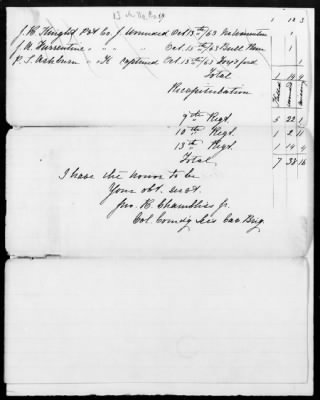 1 12 3
J. W. Knight Pvt Co. J. wounded Oct 13th/63 Warrenton 1
J. W. Turrentine " " " Oct. 15th/63 Bull Run 1
P. S. Ashburn " " K captured Oct. 15th/63 1
Total 1 14 4
Recapitulation Killed wounded missing
9th Regt. 5 22 1
10th Regt. 1 2 11
13th Regt. 1 14 4
Total 7 38 16
I have the honor to be
Your obt. servt.
Jno. R. Chambliss Jr.
Col. Comdg Lees Cav. Brig.